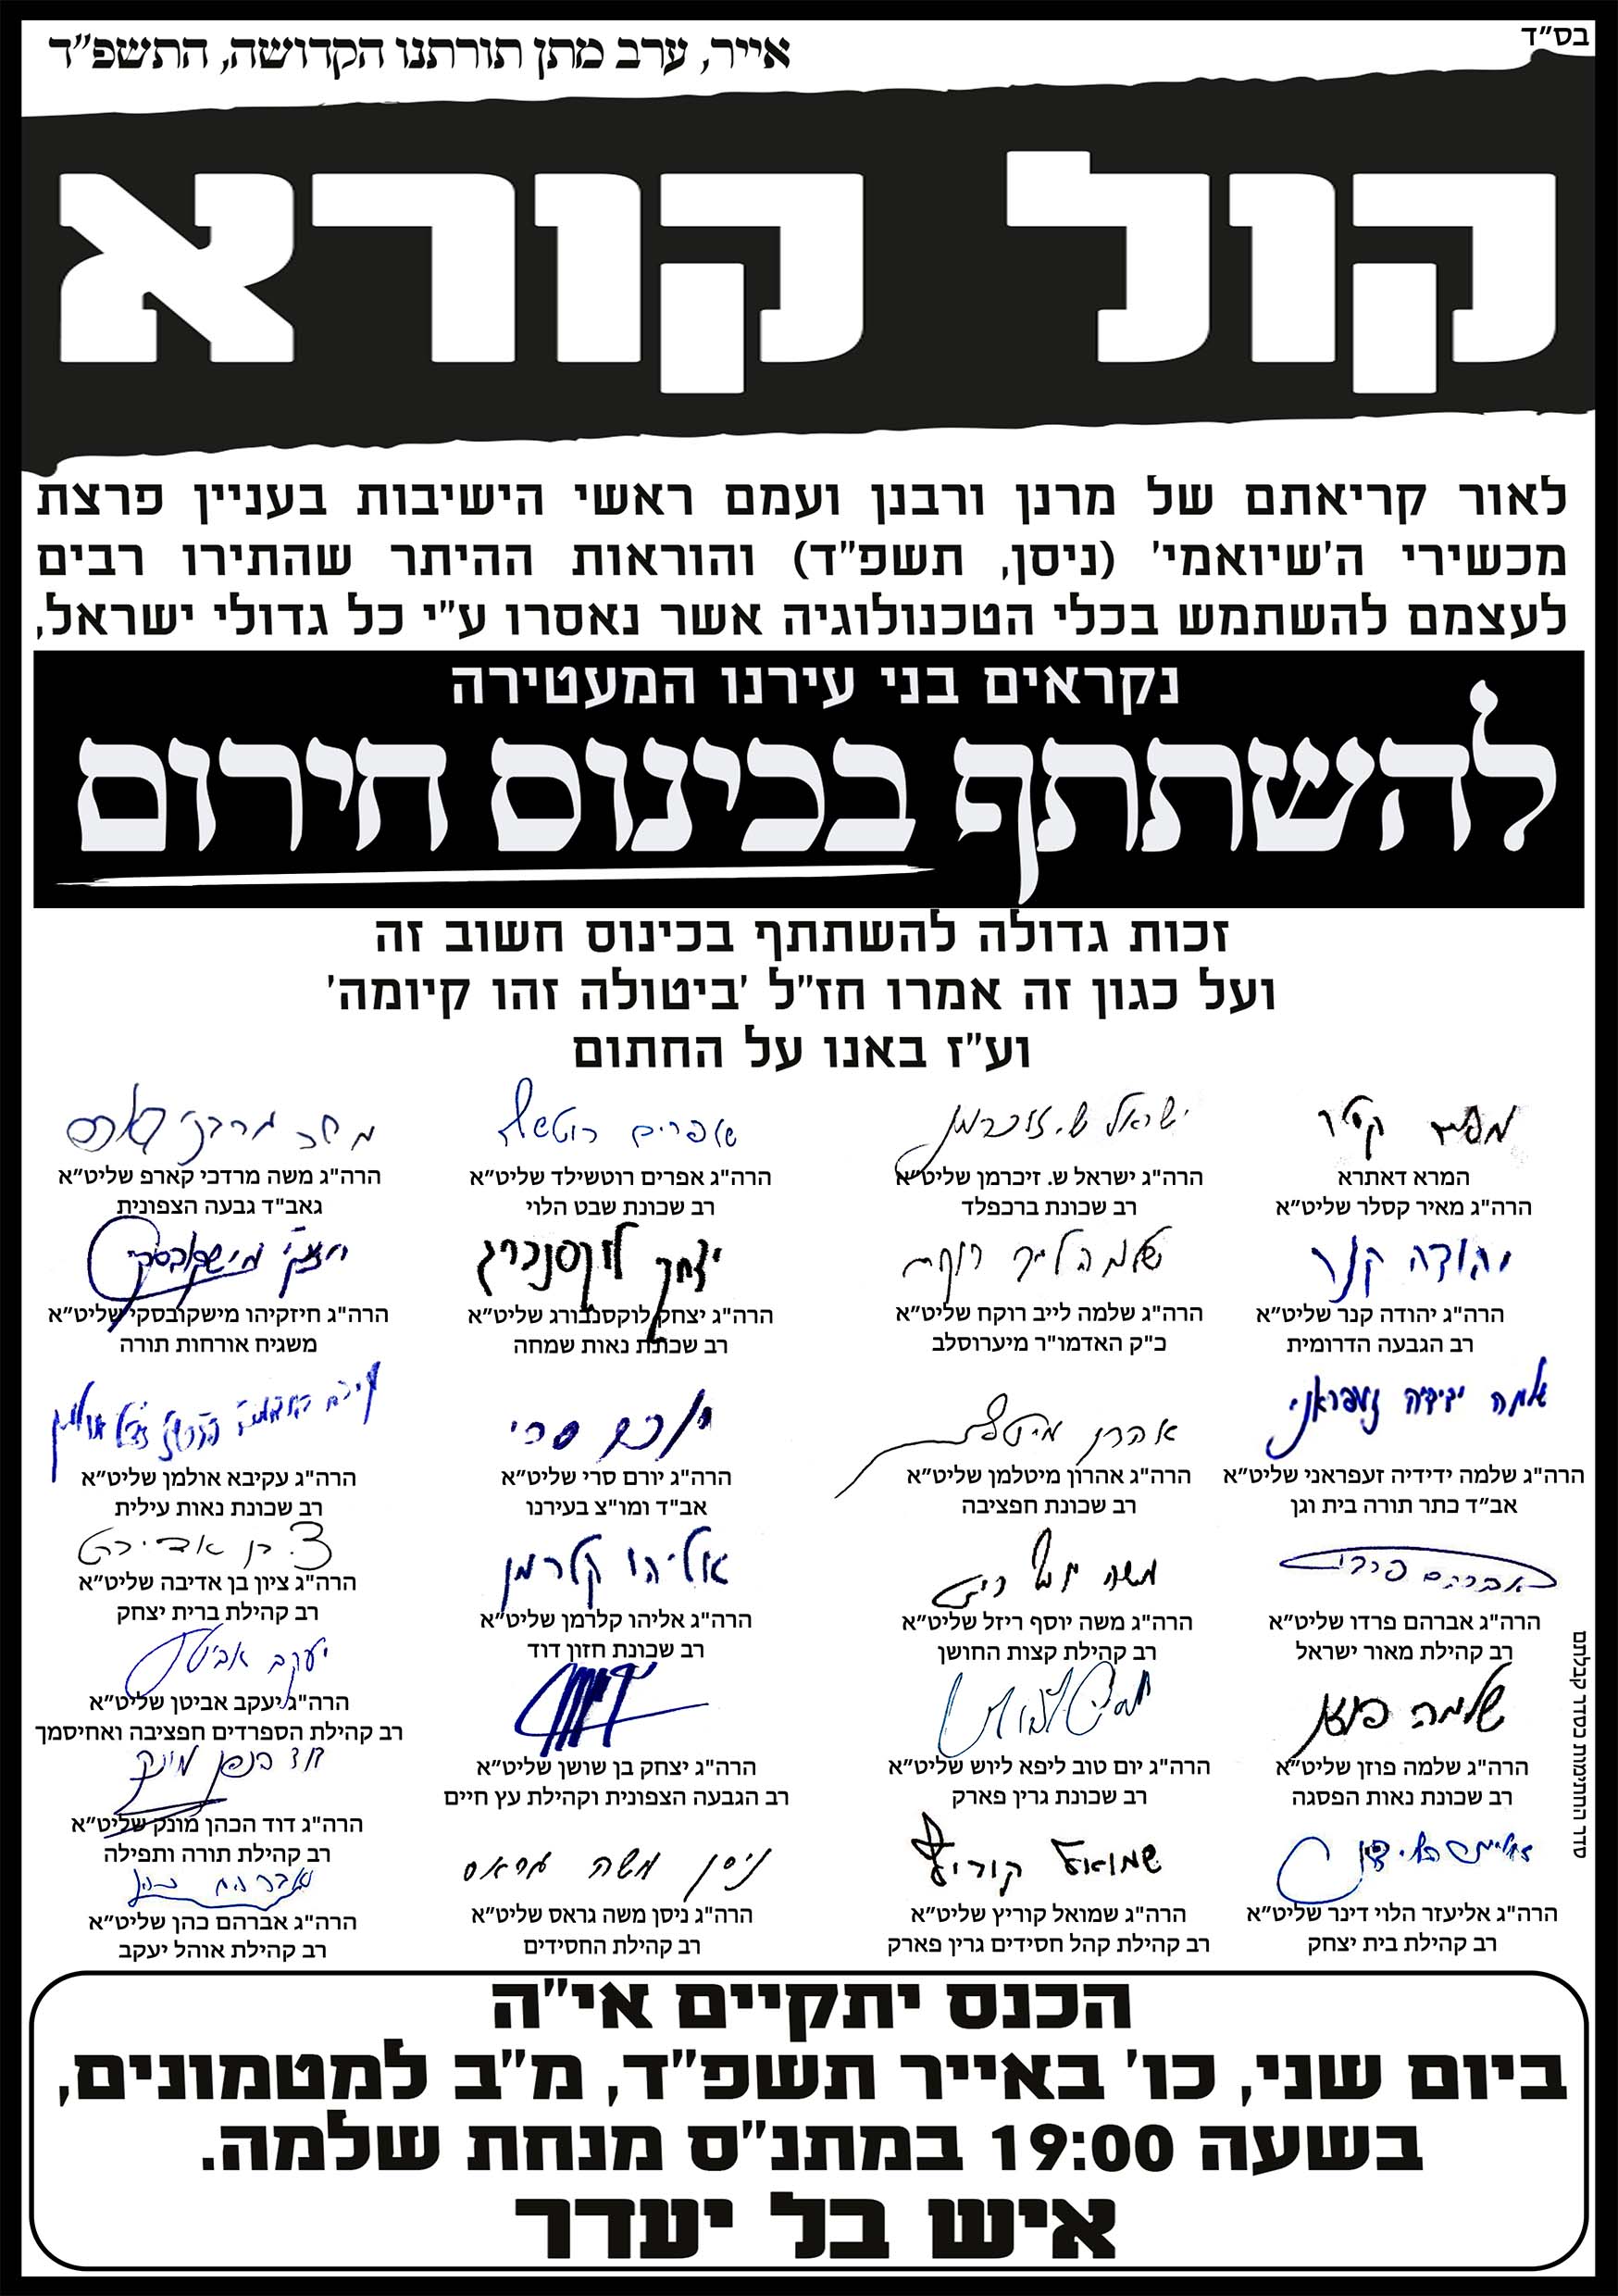 בס״ד
אייר, ערב מתן תורתנו הקדושה, התשפ״ד
קול קורא
לאור קריאתם של מרנן ורבנן ועמם ראשי הישיבות בעניין פרצת
מכשירי ה'שיואמי' (ניסן, תשפ״ד) והוראות ההיתר שהתירו רבים
לעצמם להשתמש בכלי הטכנולוגיה אשר נאסרו ע״י כל גדולי ישראל,
נקראים בני עירנו המעטירה
להשתתף בכינוס חירום
זכות גדולה להשתתף בכינוס חשוב זה
ועל כגון זה אמרו חז״ל 'ביטולה זהו קיומה'
וע״ז באנו על החתום
המרא דאתרא
הרה"ג מאיר קסלר שליט״א
הרה"ג ישראל ש. זיכרמן שליט״א
רב שכונת ברכפלד
הרה"ג אפרים רוטשילד שליט״א
רב שכונת שבט הלוי
הרה"ג משה מרדכי קארפ שליט״א
גאב"ד גבעה הצפונית
יהודה קנר
הרה"ג יהודה קנר שליט״א
רב הגבעה הדרומית
הרה"ג שלמה לייב רוקח שליט״א
כ"ק האדמו"ר מיערוסלב
יצחק לוקסנבורג
הרה"ג יצחק לוקסנבורג שליט״א
רב שכונת נאות שמחה
הרה"ג חיזקיהו מישקובסקי שליט״א
משגיח אורחות תורה
שלמה ידידיה זעפראני
הרה"ג שלמה ידידיה זעפראני שליט״א
אב״ד כתר תורה בית וגן
הרה"ג אהרון מיטלמן שליט״א
רב שכונת חפציבה
הרה"ג יורם סרי שליט״א
אב"ד ומו"צ בעירנו
הרה"ג עקיבא אולמן שליט״א
רב שכונת נאות עילית
אברהם פרדו
הרה"ג אברהם פרדו שליט״א
רב קהילת מאור ישראל
הרה"ג משה יוסף ריזל שליט״א
רב קהילת קצות החושן
אליהו קלרמן
הרה"ג אליהו קלרמן שליט״א
רב שכונת חזון דוד
הרה"ג ציון בן אדיבה שליט״א
רב קהילת ברית יצחק
שלמה פוזן
הרה"ג שלמה פוזן שליט״א
רב שכונת נאות הפסגה
הרה"ג יום טוב ליפא ליוש שליט״א
רב שכונת גרין פארק
הרה"ג יצחק בן שושן שליט״א
רב הגבעה הצפונית וקהילת עץ חיים
יעקב אביטן
הרה"ג יעקב אביטן שליט״א
רב קהילת הספרדים חפציבה ואחיסמך
הרה"ג אליעזר הלוי דינר שליט״א
רב קהילת בית יצחק
שמואל קוריץ
הרה"ג שמואל קוריץ שליט״א
רב קהילת קהל חסידים גרין פארק
ניסן משה גראס
הרה"ג ניסן משה גראס שליט״א
רב קהילת החסידים
דוד הכהן מונק
הרה"ג דוד הכהן מונק שליט״א
רב קהילת תורה ותפילה
הרה"ג אברהם כהן שליט״א
רב קהילת אוהל יעקב
סדר החתימות כסדר קבלתם
הכנס יתקיים אי״ה
ביום שני, כו' באייר תשפ״ד, מ״ב למטמונים,
בשעה 19:00 במתנ״ס מנחת שלמה.
איש בל יעדר